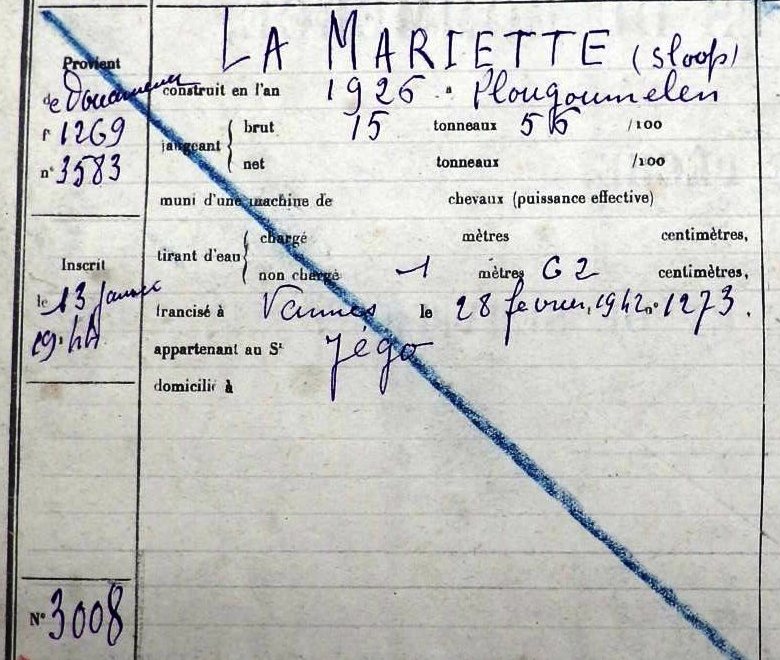 LA MARIETTE (sloop)
Provient
de Douarnenez
f° 1269
n° 3583
construit en l'an 1926 a Plougoumelen
jaugeant { brut 15 tonneaux 56 /100
net tonneaux /100
muni d'une machine de chevaux (puissance effective)
tirant d'eau { chargé mètres centimètres,
non chargé 1 mètres 62 centimètres,
Inscrit
le 13 janvier
19
francisé à Vannes le 28 fevrier 1942 n° 1273.
appartenant au Sr Jégo
domicilié à
N° 3008